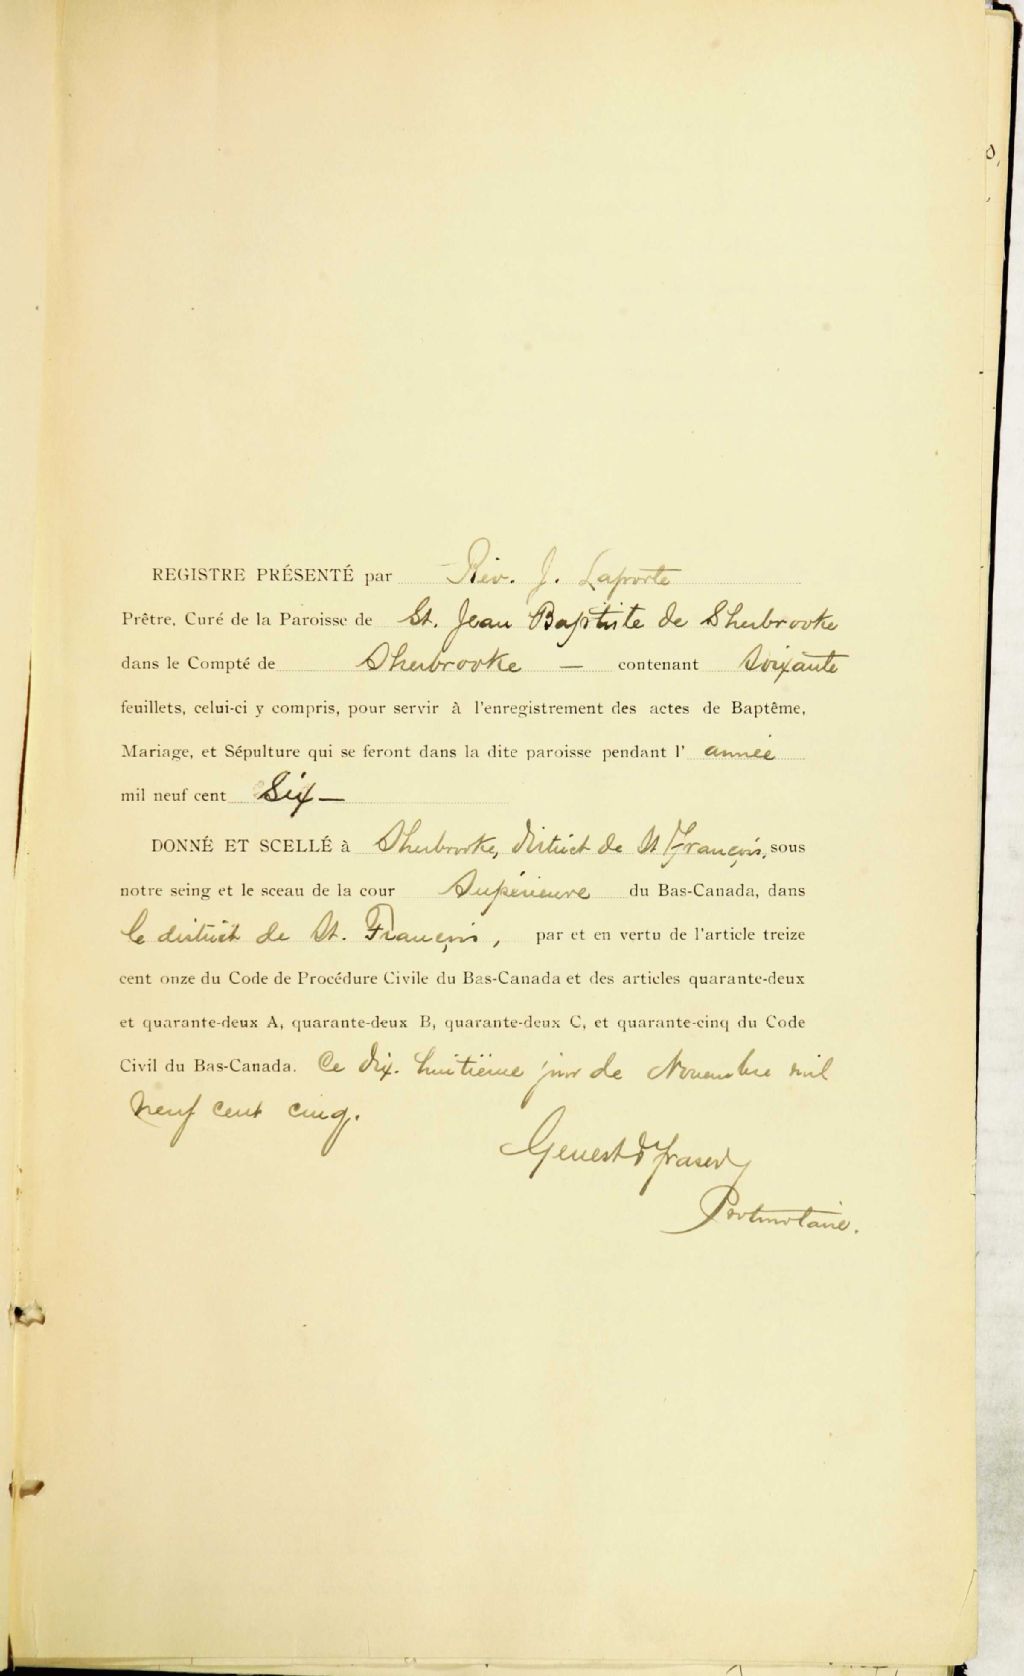 REGISTRE PRÉSENTÉ par Rév. J. Laporte
Prêtre, Curé de la Paroisse de St. Jean Baptiste de Sherbrooke
dans le Compté de Sherbrooke — contenant soixante
feuillets, celui-ci y compris, pour servir à l'enregistrement des actes de Baptême,
Mariage, et Sépulture qui se feront dans la dite paroisse pendant l' année
mil neuf cent Six —
DONNÉ ET SCELLÉ à Sherbrooke, district de St François, sous
notre seing et le sceau de la cour Supérieure du Bas-Canada, dans
le district de St. François, par et en vertu de l'article treize
cent onze du Code de Procédure Civile du Bas-Canada et des articles quarante-deux
et quarante-deux A, quarante-deux B, quarante-deux C, et quarante-cinq du Code
Civil du Bas-Canada. Ce dix-huitième jour de Novembre mil
neuf cent cinq.
Genest & Fraser
Protonotaire.